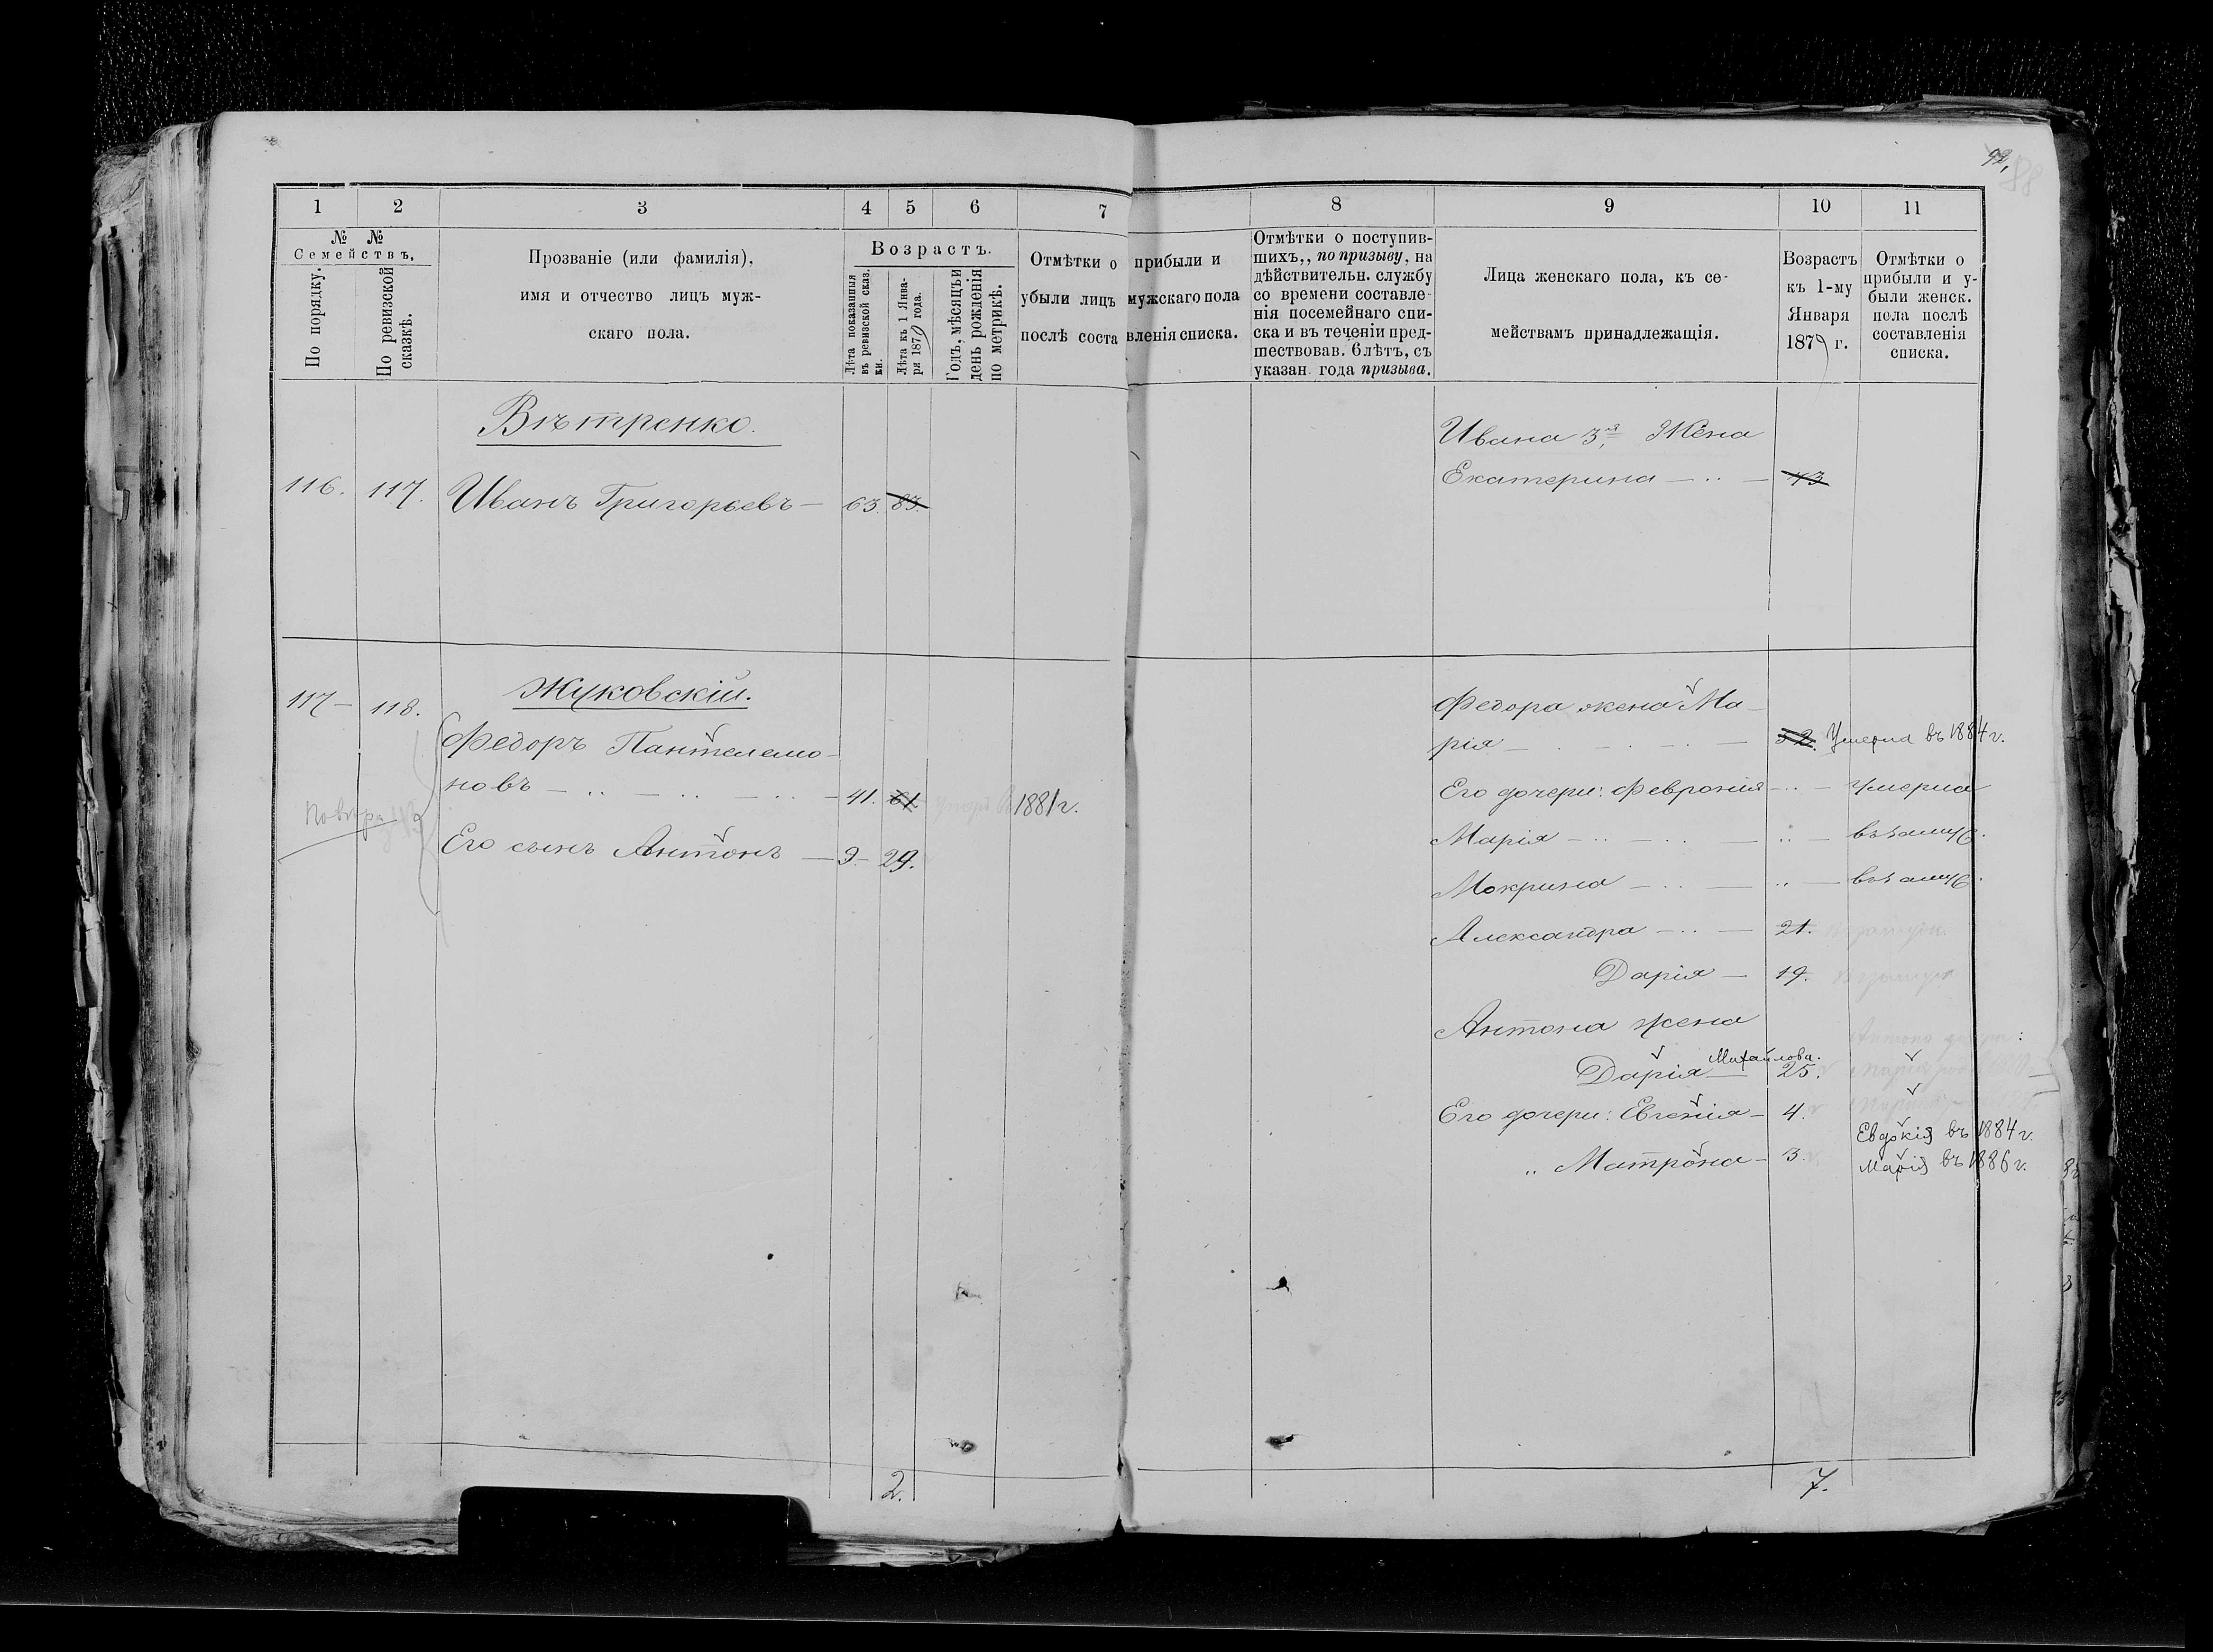 1 2 3 4 5 6 7 8 9 10 11
№ №
Семействъ.
По порядку.
По ревизской
сказкѣ.
Прозваніе (или фамилія),
имя и отчество лицъ муж-
скаго пола.
Возрастъ.
Лѣта показанныя
въ ревизской сказ.
ки.
Лѣта къ 1 Янва-
ря 1879 года.
Годъ, мѣсяцъ и
день рожденія
по метрикѣ.
Отмѣтки о прибыли и
убыли лицъ мужскаго пола
послѣ составленія списка.
Отмѣтки о поступив-
шихъ,, по призыву, на
дѣйствительн. службу
со времени составле-
нія посемейнаго спи-
ска и въ теченіи пред-
шествовав. 6 лѣтъ, съ
указан. года призыва.
Лица женскаго пола, къ се-
мействамъ принадлежащія.
Возрастъ
къ 1-му
Января
1879 г.
Отмѣтки о
прибыли и у-
были женск.
пола послѣ
составленія
списка.
Вѣтренко.
116. 117. Иванъ Григорьевъ — 63. 83.
Ивана 3я Жена
Екатерина — .. — 43
117 — 118. Жуковскій.
Федоръ Пантелемо-
новъ — .. — .. — .. — 41. 61 1881 г.
Его сынъ Антонъ — 9 — 29.
Федора жена Ма-
рія — 52. Умерла въ 1884 г.
Его дочери: Февронія — .. — Умерла
Марія — .. — .. — .. — въ замуж.
Мокрина — .. — .. — въ замуж.
Александра — .. — 21.
Дарія — 19.
Антона жена
Михайлова.
Дарія — 25.
Его дочери: Евгенія — 4.
Евдокія въ 1884 г.
„ Матрона — 3.
Марія въ 1886 г.
2.
7.